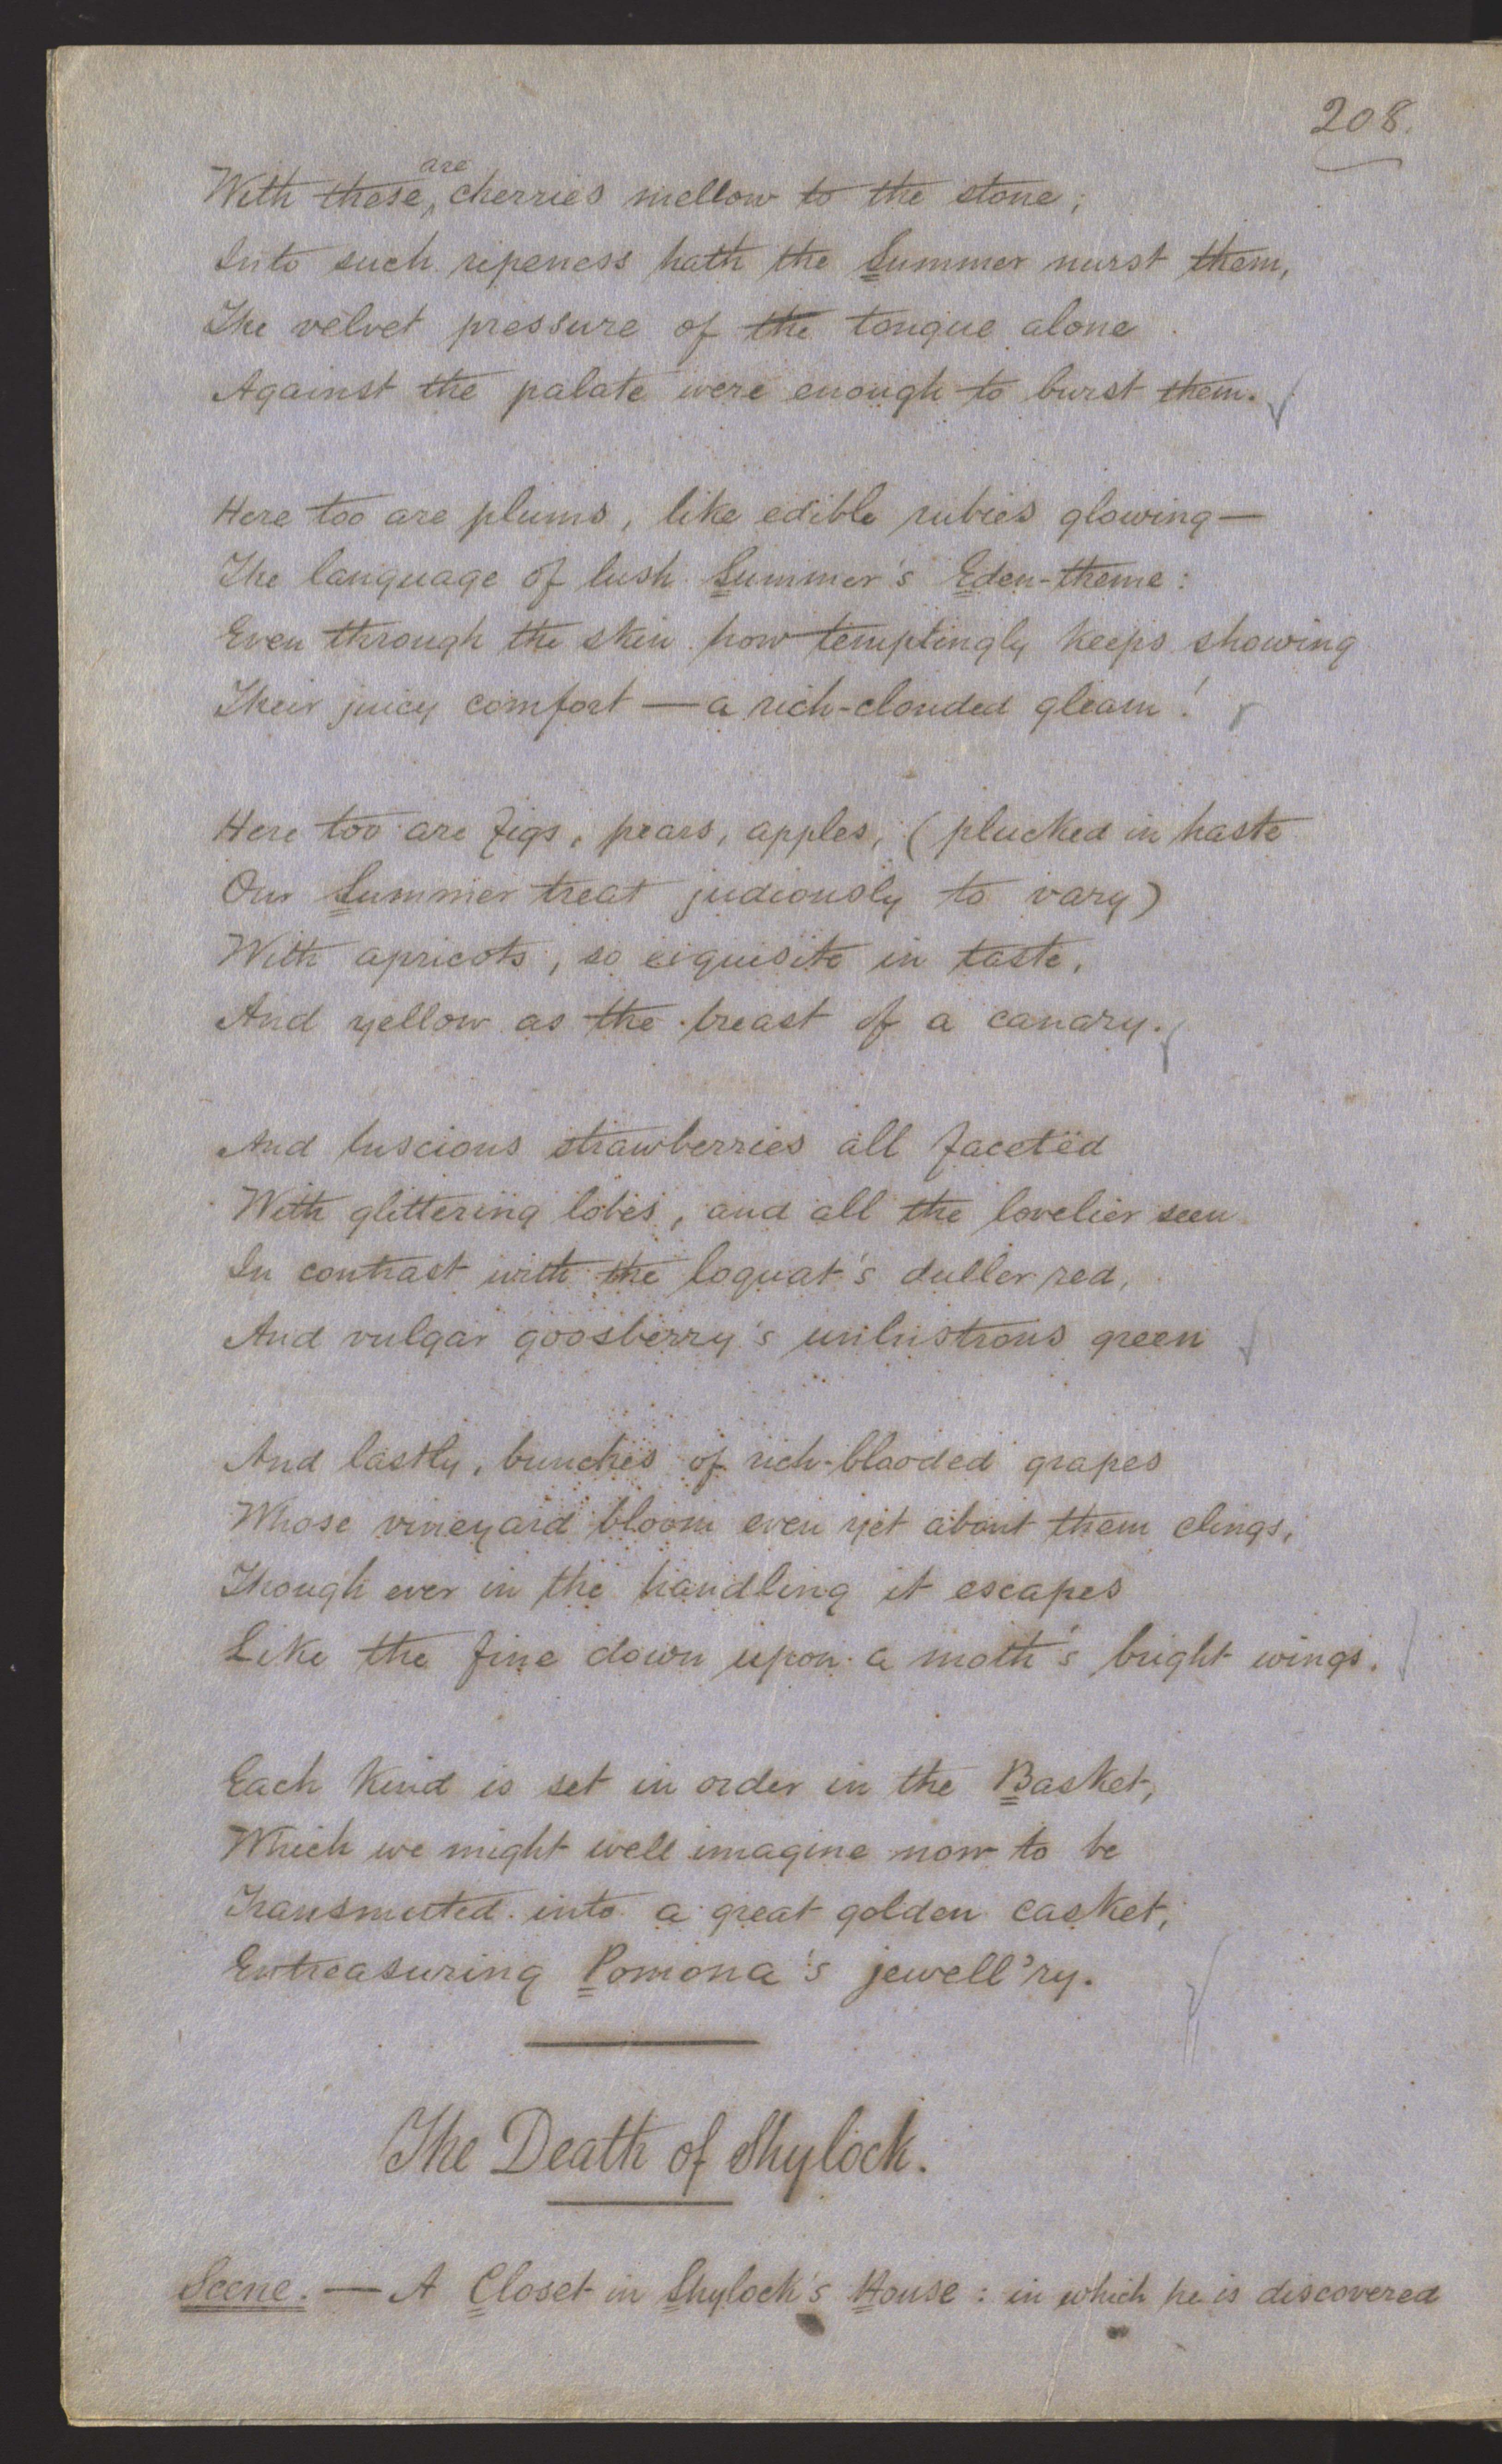 208.
With these are cherries mellow to the stone;
Into such ripeness hath the Summer nurst them,
The velvet pressure of the tongue alone
Against the palate were enough to burst them.
Here too are plums, like edible rubies glowing—
The language of lush Summer's Eden-theme:
Even through the skin how temptingly keeps showing
Their juicy comfort — a rich-clouded gleam!
Here too are figs, pears, apples, (plucked in haste
Our Summer treat judiously to vary)
With apricots, so exquisite in taste,
And yellow as the breast of a canary.
And luscious strawberries all facetëd
With glittering lobes, and all the lovelier seen
In contrast with the loquat's duller red,
And vulgar goosberry's unlustrous green
And lastly, bunches of rich-blooded grapes
Whose vineyard bloom even yet about them clings,
Though ever in the handling it escapes
Like the fine down upon a moth's bright wings.
Each kind is set in order in the Basket,
Which we might well imagine now to be
Transmuted into a great golden casket,
Entreasuring Pomona's jewell'ry.
The Death of Shylock.
Scene. — A Closet in Shylock's House: in which he is discovered